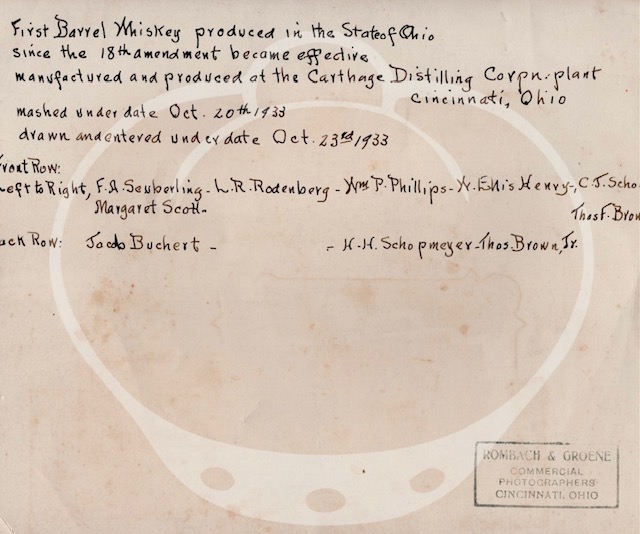 First Barrel Whiskey produced in the State of Ohio
since the 18th amendment became effective
manufactured and produced at the Carthage Distilling Corpn. plant
Cincinnati, Ohio
mashed under date Oct. 20th 1933
drawn and entered under date Oct. 23rd 1933
Front Row:
Left to Right, F.A. Seuberling - L.R. Rodenberg - Wm P. Phillips - W. Ellis Henry -, C.J. Scho
Margaret Scott - Thos F. Brow
ack Row: Jacob Buchert - - H.H. Schopmeyer - Thos. Brown, Jr.
ROMBACH & GROENE
COMMERCIAL
PHOTOGRAPHERS
CINCINNATI, OHIO